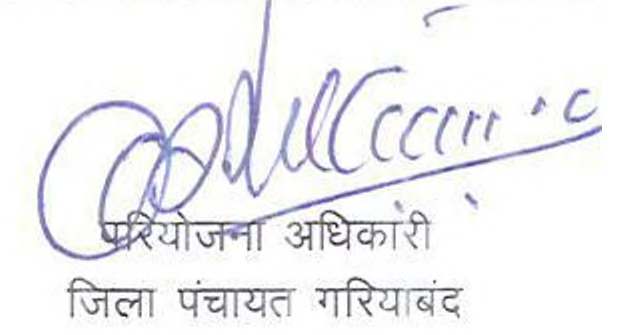 परियोजना अधिकारी
जिला पंचायत गरियाबंद